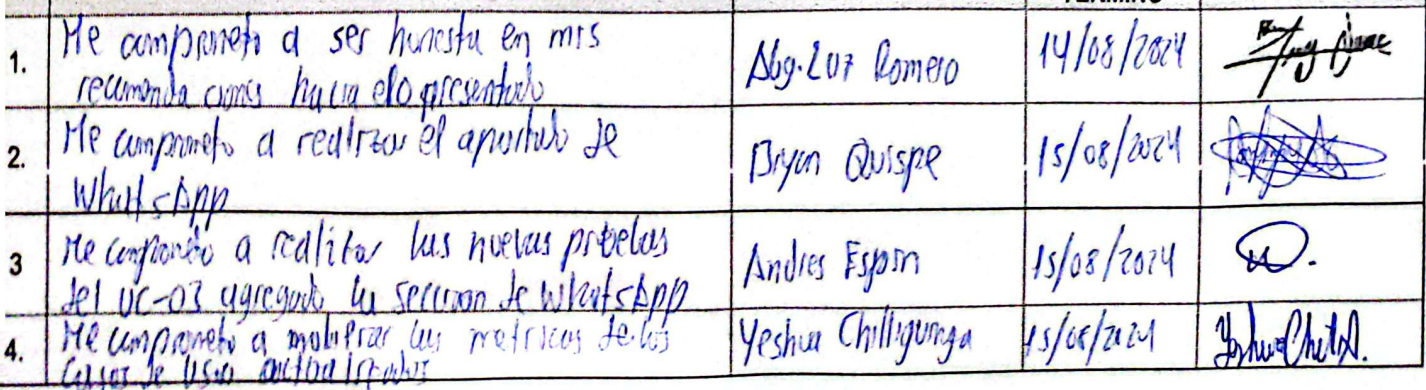 TÉRMINO
1.
Me comprometo a ser honesta en mis
recomendaciones hacia el o presentado
Abg. Luz Romero
14/08/2024
2.
Me comprometo a realizar el apartado de
WhatsApp
Bryan Quispe
15/08/2024
3
Me comprometo a realizar las nuevas pruebas
del UC-03 agregado la seccion de WhatsApp
Andres Espin
15/08/2024
4.
Me comprometo a las metricas de los
Casos de Uso actualizados
Yeshua Chilliquinga
15/08/2024